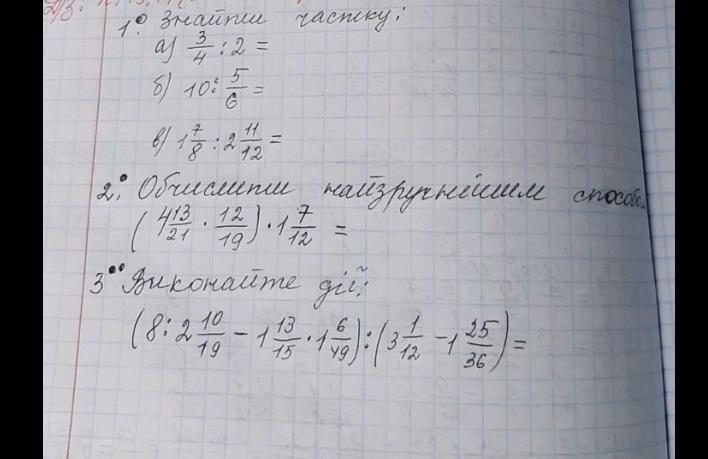 1° Знайти частку:
а) 3/4 : 2 =
б) 10 : 5/6 =
в) 1 7/8 : 2 11/12 =
2° Обчислити найзручнішим способо
(4 13/21 · 12/19) · 1 7/12 =
3°° Виконайте дії:
(8 : 2 10/19 − 1 13/15 · 1 6/49) : (3 1/12 − 1 25/36) =